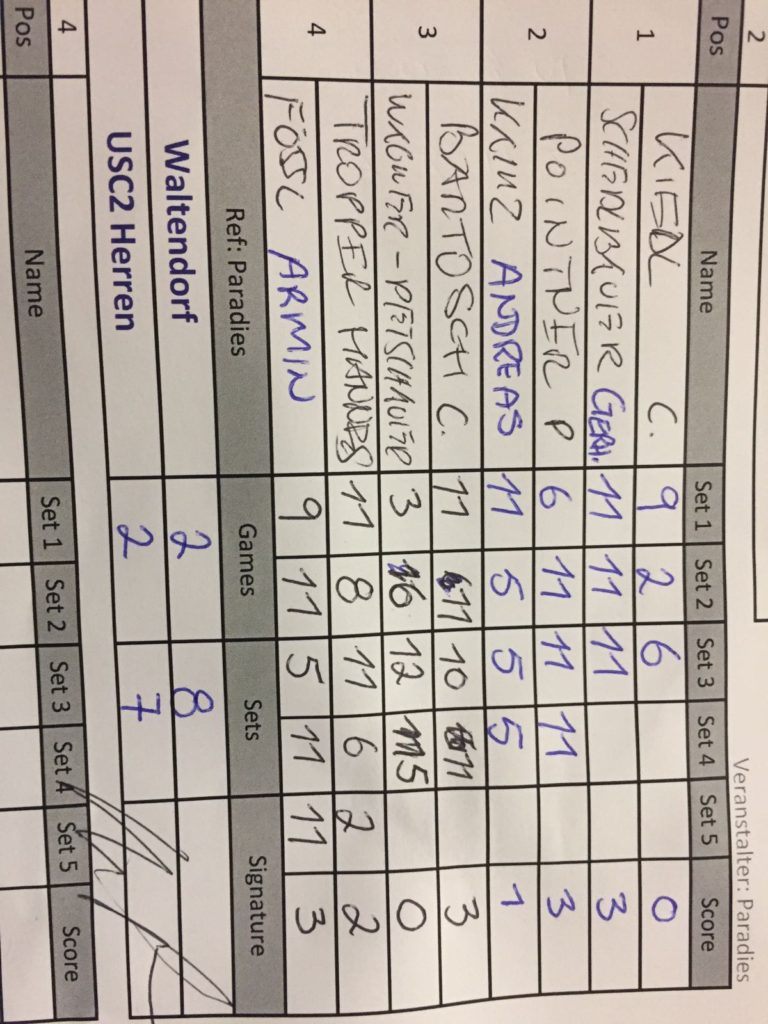 Veranstalter: Paradies
2
Pos Name Set 1 Set 2 Set 3 Set 4 Set 5 Score
1 KIEDL C. 9 2 6 0
GERH. 11 11 11 3
2 POINTNER P 6 11 11 11 3
KAINZ ANDREAS 11 5 5 5 1
3 BARTOSCH C. 11 11 10 11 3
WAGNER - PETSCHAUER 3 6 12 5 0
4 TROPPER HANNES 11 8 11 6 2 2
FÖSSL ARMIN 9 11 5 11 11 3
Ref: Paradies Games Sets Signature
Waltendorf 2 8
USC2 Herren 2 7
4
Pos Name Set 1 Set 2 Set 3 Set 4 Set 5 Score